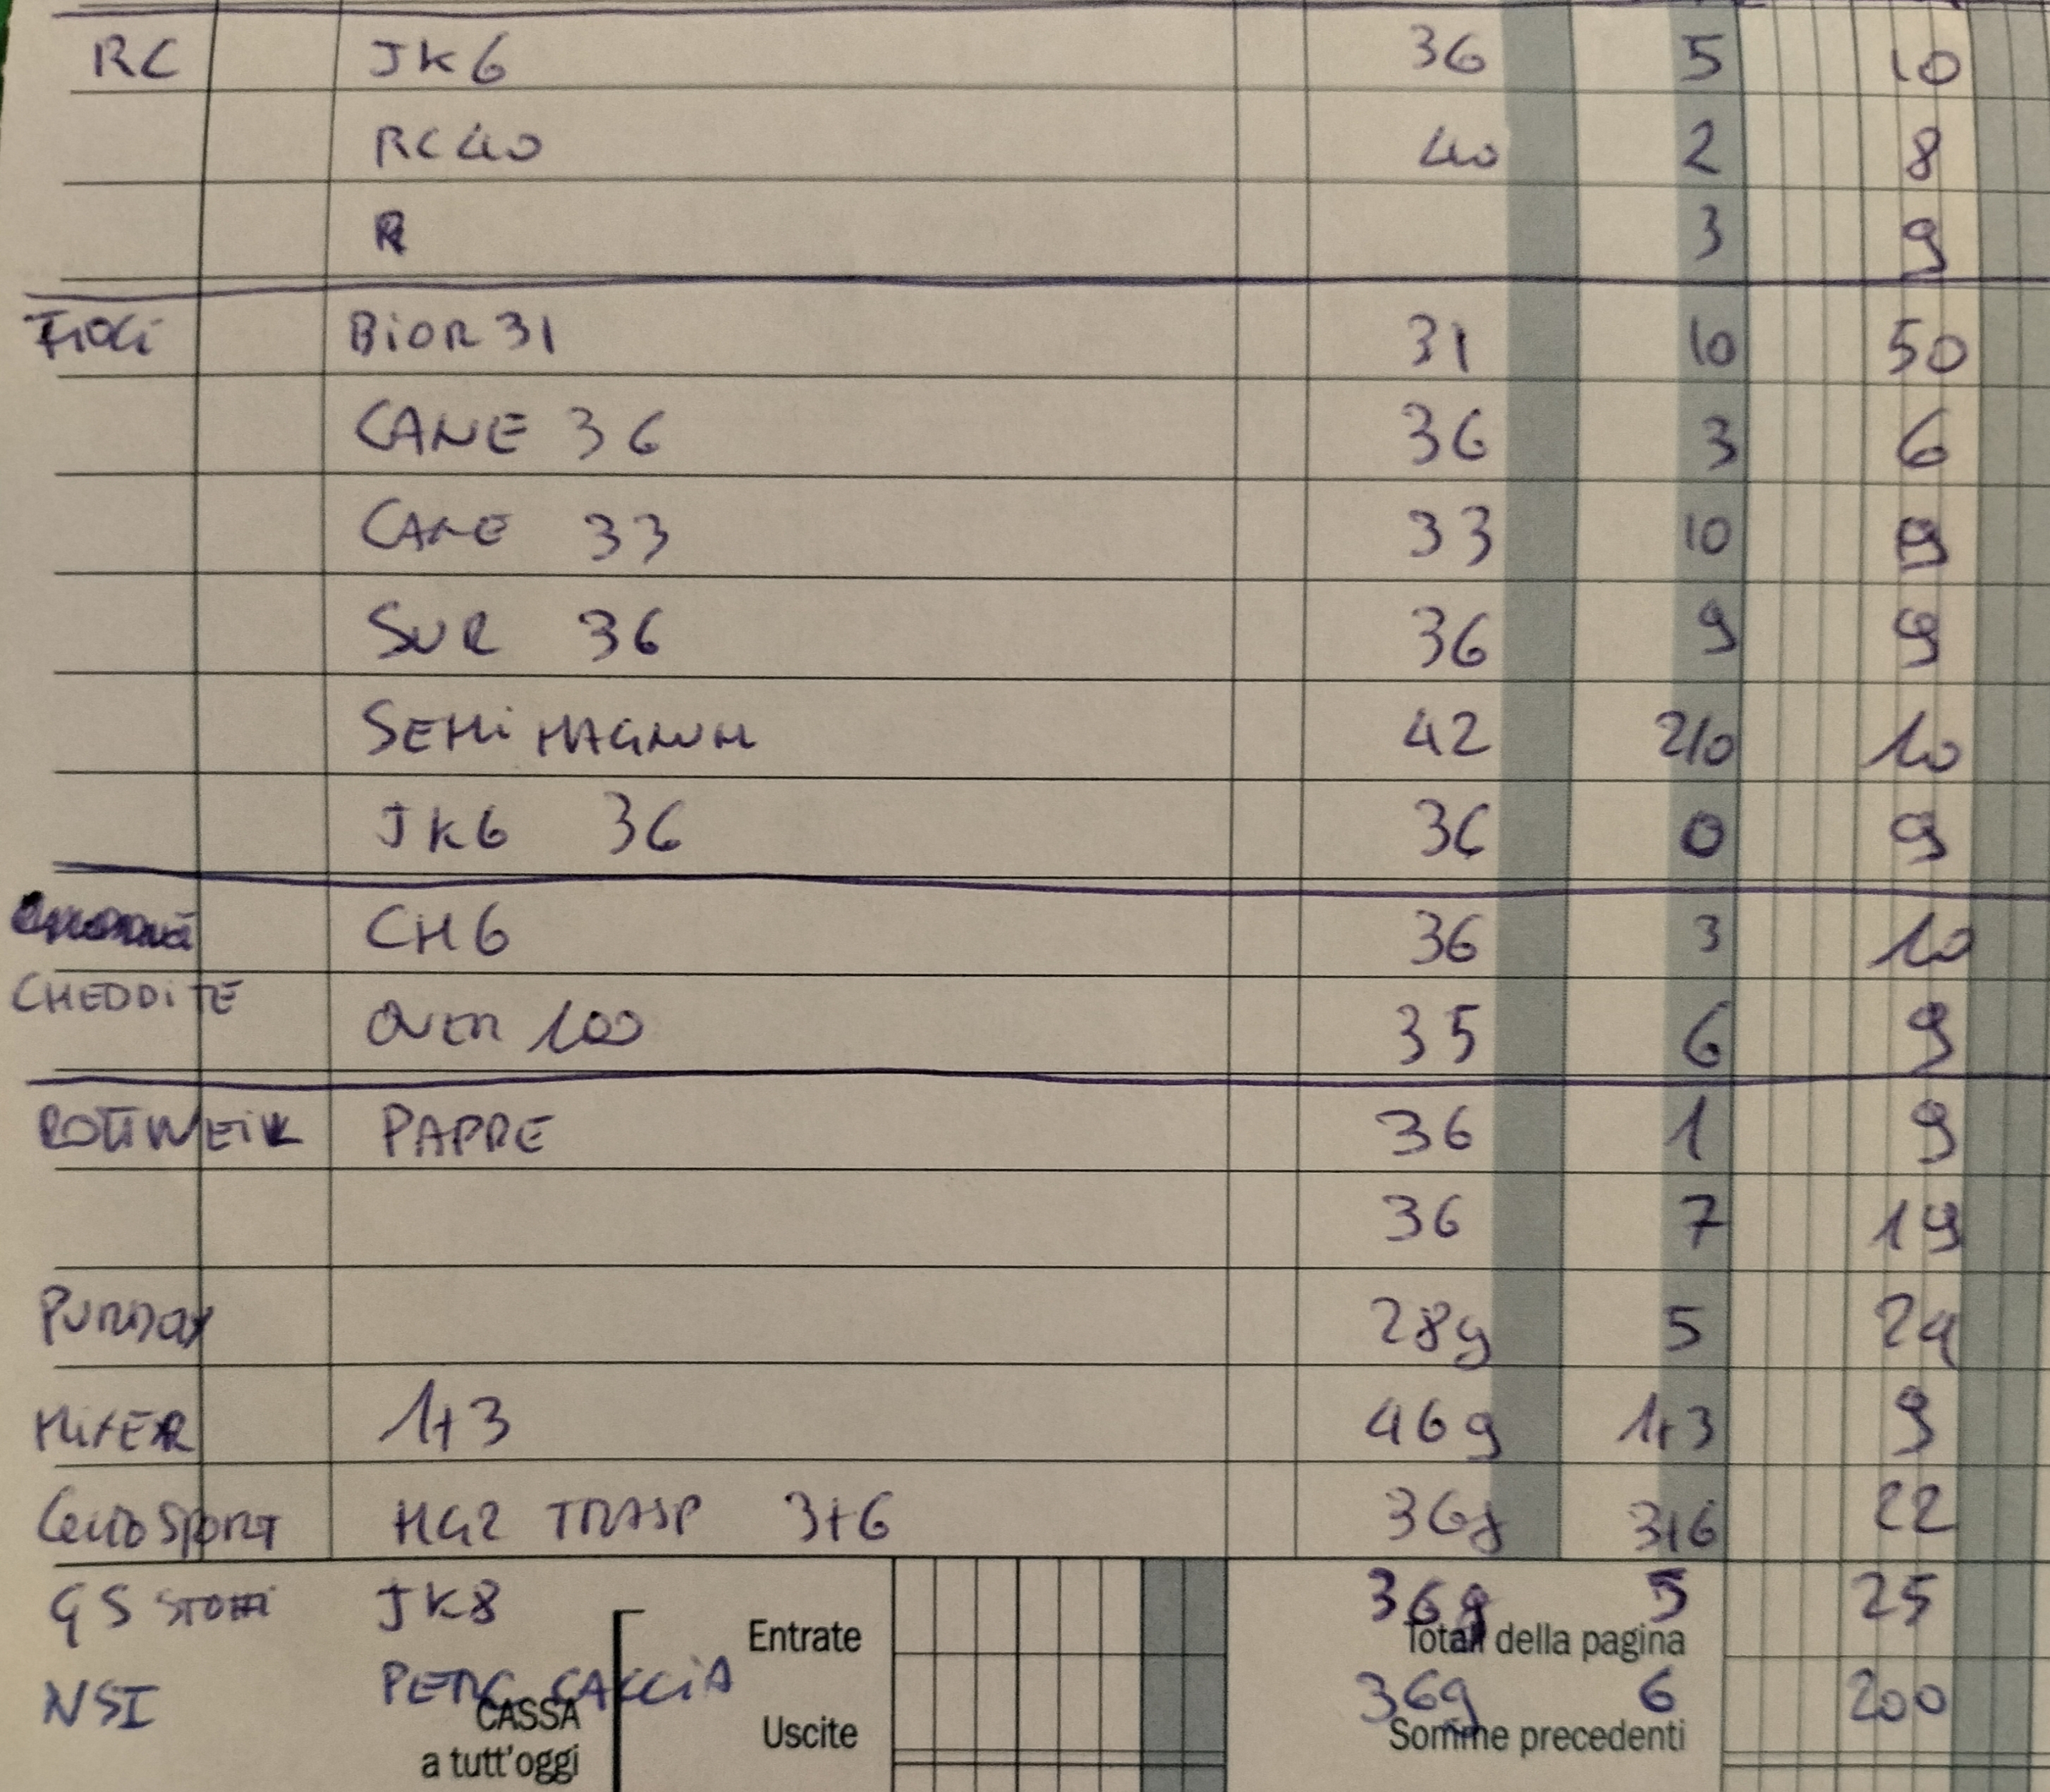 RC JK6 36 5 10
RC40 40 2 8
R 3 9
FIOCI BIOR 31 31 10 50
CANE 36 36 3 6
CANE 33 33 10 9
SUR 36 36 9 9
SEMI MAGNUM 42 2/0 10
JK6 36 36 0 9
CH6 36 3 10
CHEDDITE OVER 100 35 6 9
ROTTWEIL PAPRE 36 1 9
36 7 19
PURDAY 28g 5 24
MIXER 1+3 46g 1+3 9
EUROSPORT HG2 TRASP 3+6 36g 3+6 22
GS STORM JK8 36g 5 25
Entrate Totali della pagina
NSI PERC CACCIA 36g 6 200
CASSA Uscite Somme precedenti
a tutt'oggi